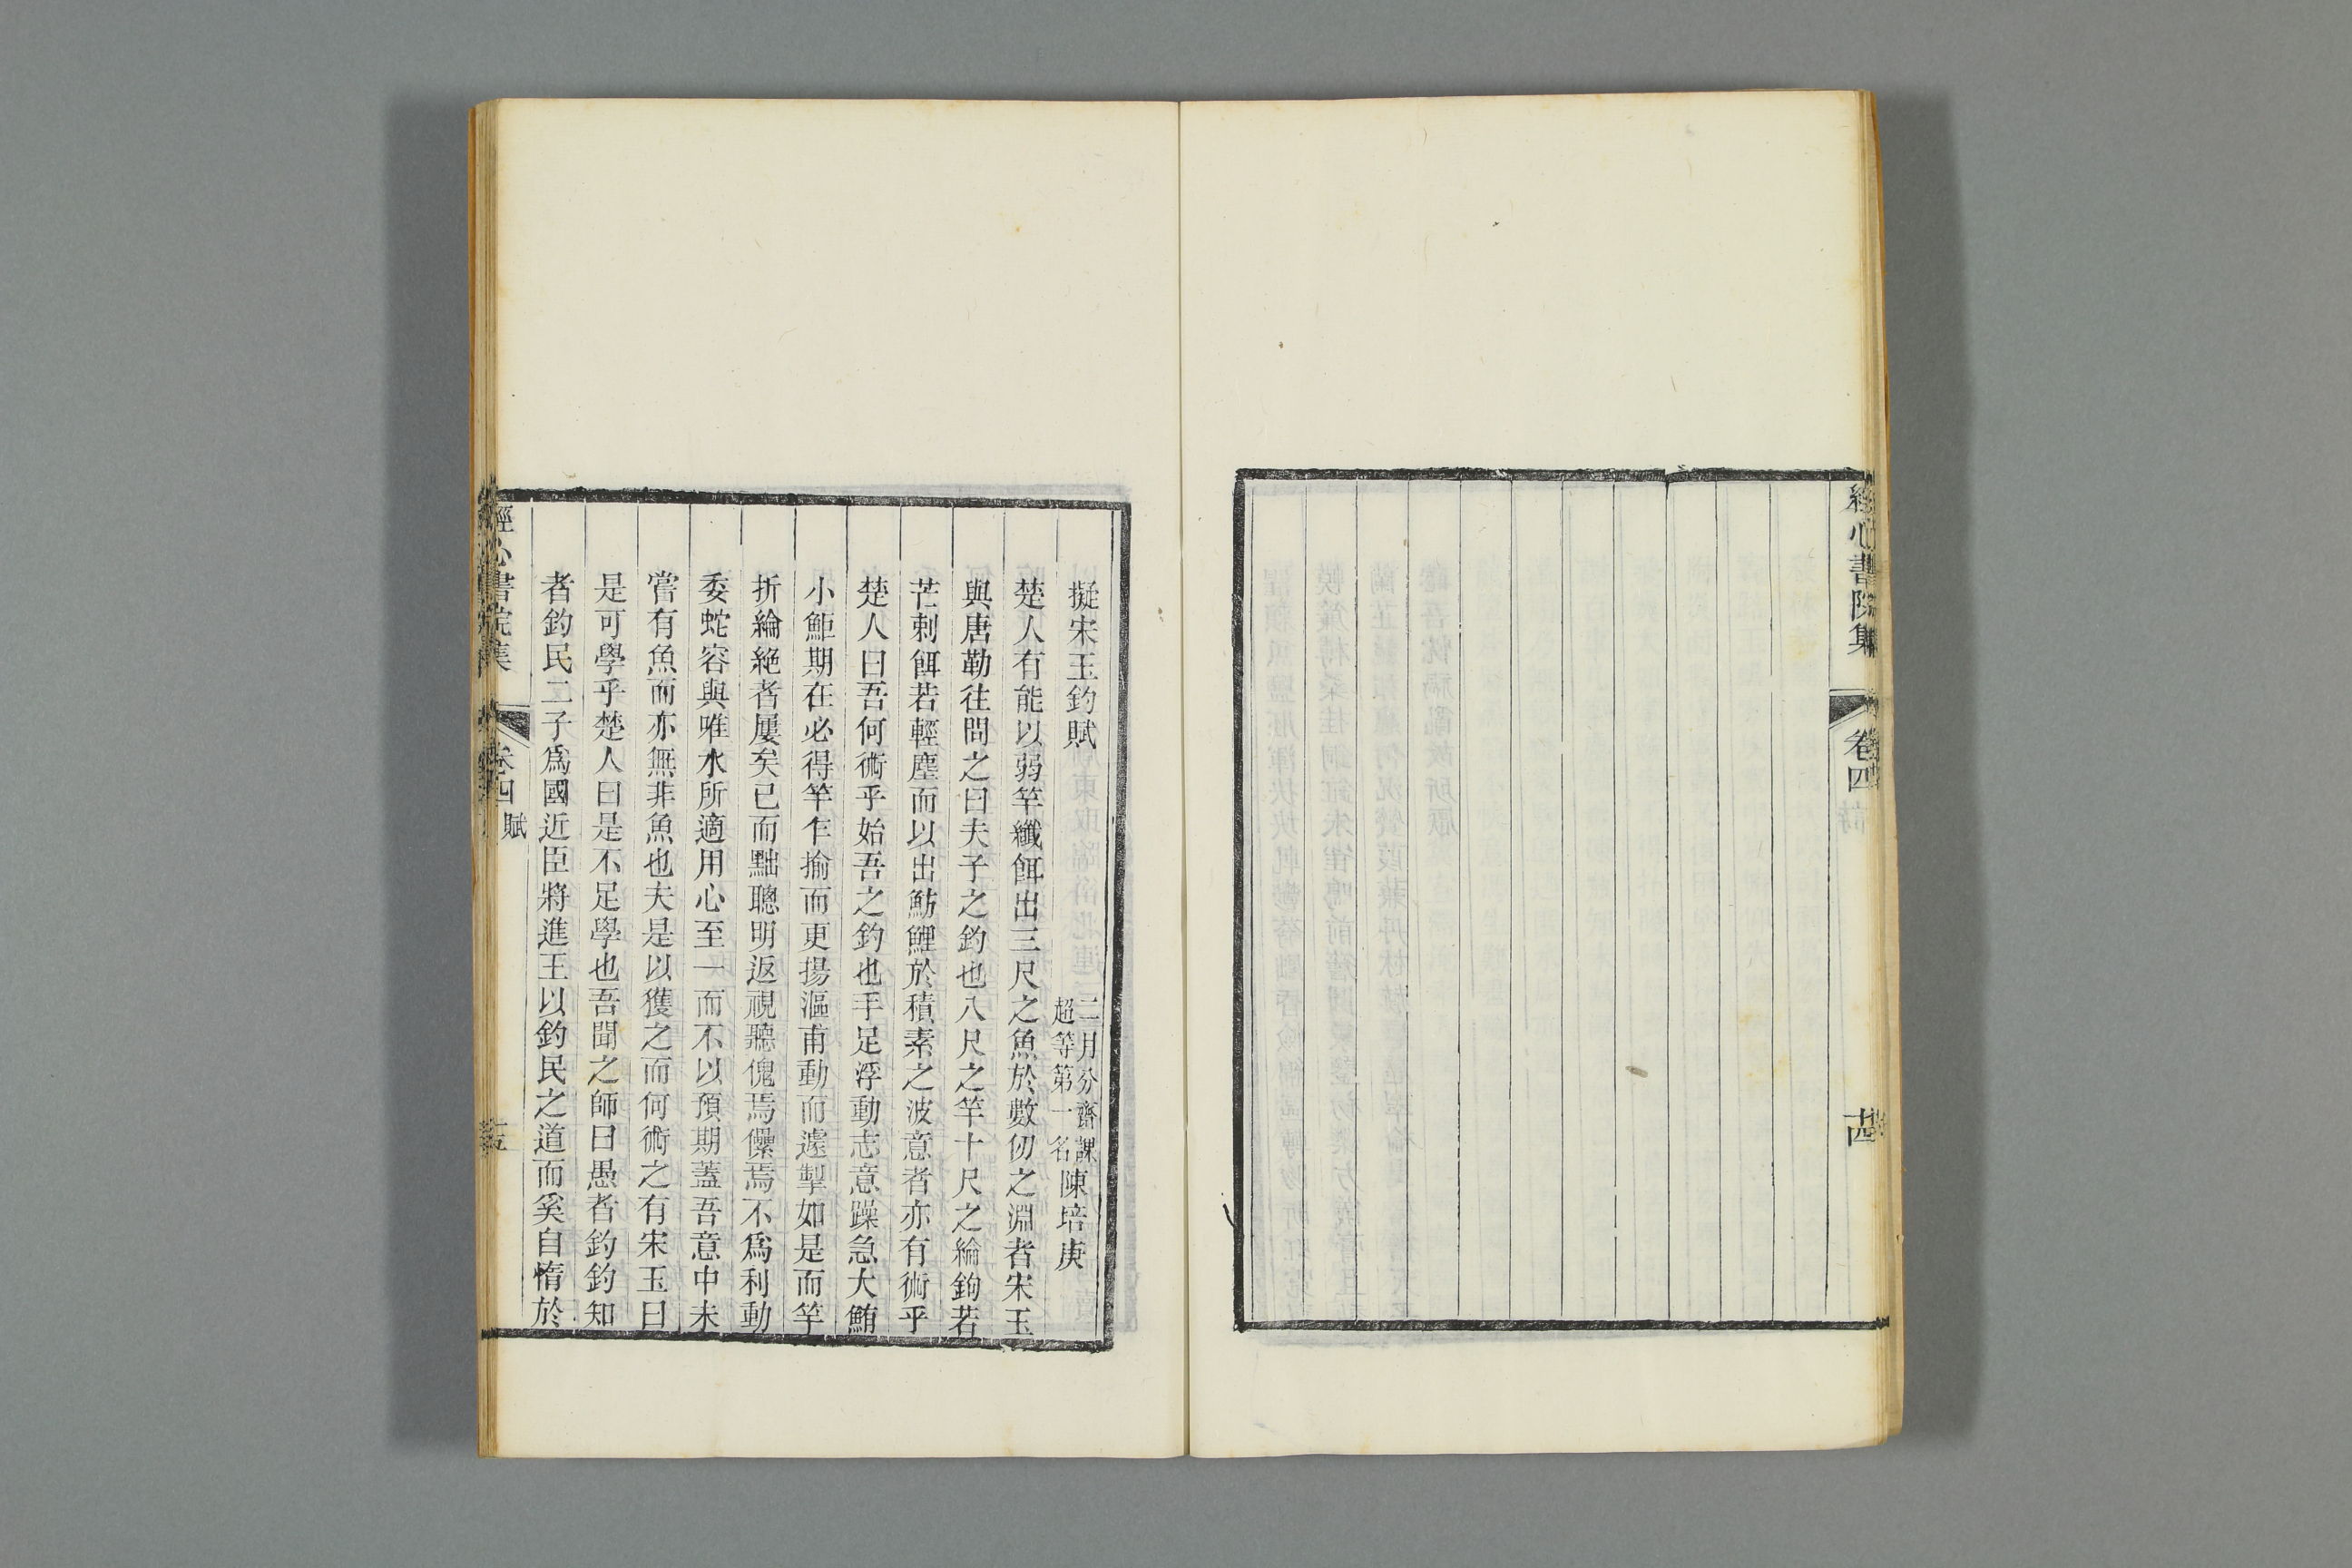 經心書院集
卷四
十四
擬宋玉釣賦
二月分齋課
超等第一名
陳培庚
楚人有能以弱竿纖餌出三尺之魚於數仞之淵者宋玉
與唐勒往問之曰夫子之釣也八尺之竿十尺之綸鉤若
芒刺餌若輕塵而以出魴鯉於積素之波意者亦有術乎
楚人曰吾何術乎始吾之釣也手足浮動志意躁急大鮪
小鮔期在必得竿乍揄而更揚漚甫動而遽掣如是而竿
折綸絕者屢矣已而黜聰明返視聽傀焉儽焉不爲利動
委蛇容與唯水所適用心至一而不以預期蓋吾意中未
嘗有魚而亦無非魚也夫是以獲之而何術之有宋玉曰
是可學乎楚人曰是不足學也吾聞之師曰愚者釣釣知
者釣民二子爲國近臣將進王以釣民之道而奚自惰於
經心書院集
卷四
賦
十五